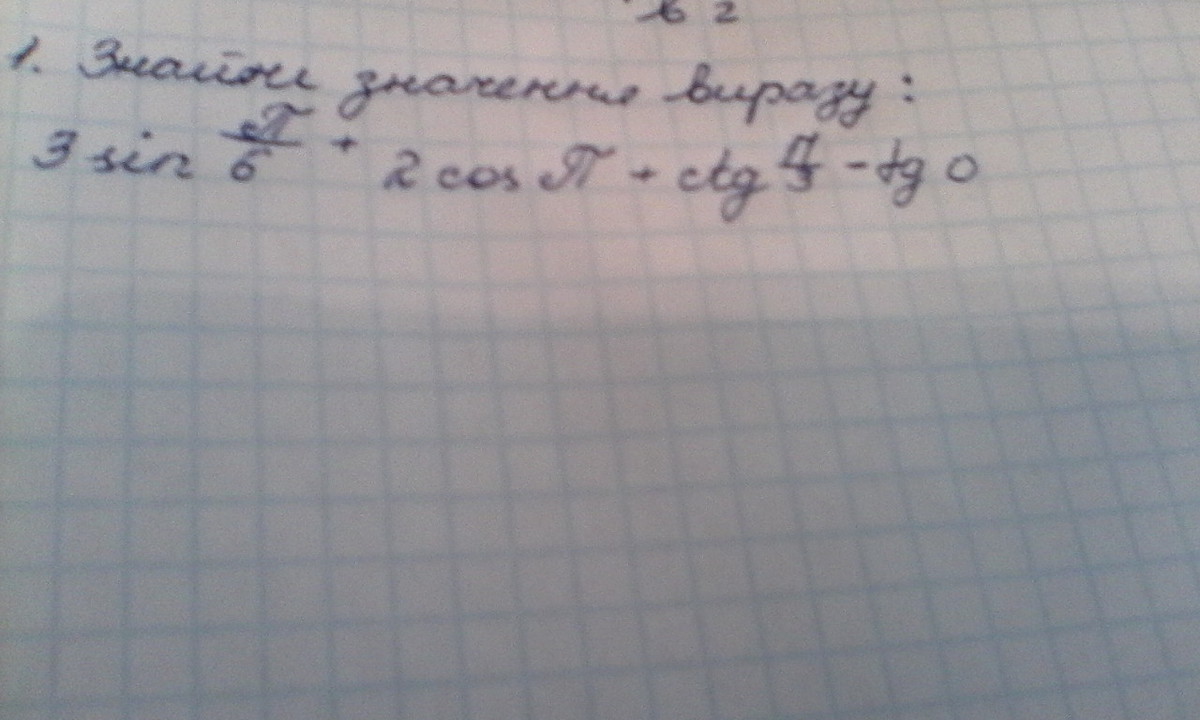 в 2
1. Знайти значення виразу:
3 sin π/6 + 2 cos π + ctg π/3 - tg 0